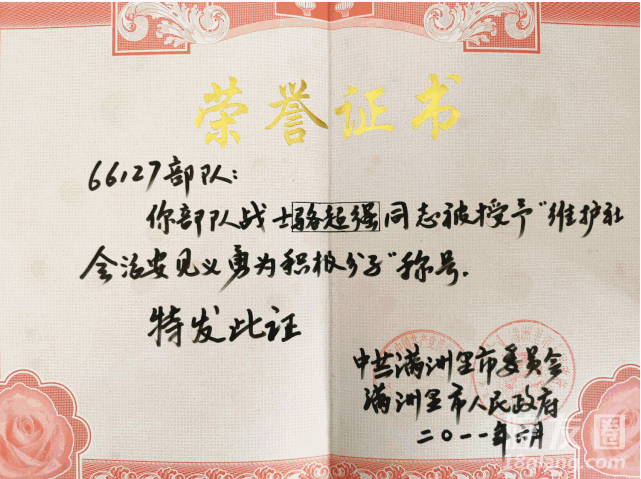 荣誉证书
66127部队:
你部队战士骆超强同志被授予"维护社
会治安见义勇为积极分子"称号.
特发此证
中共满洲里市委员会
满洲里市人民政府
二〇一一年六月